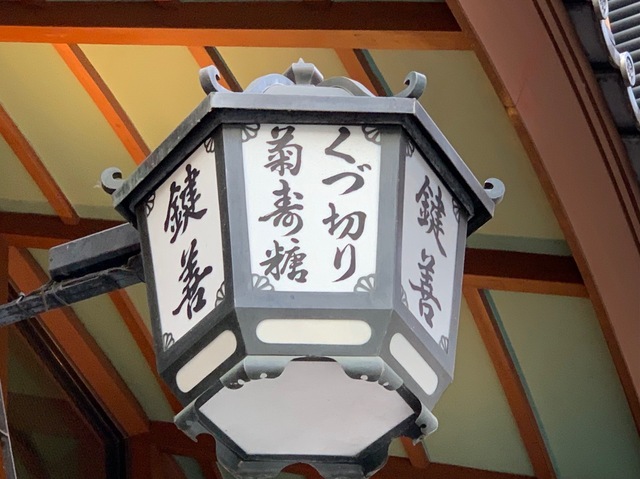 くづ切り
菊寿糖
鍵善
鍵善